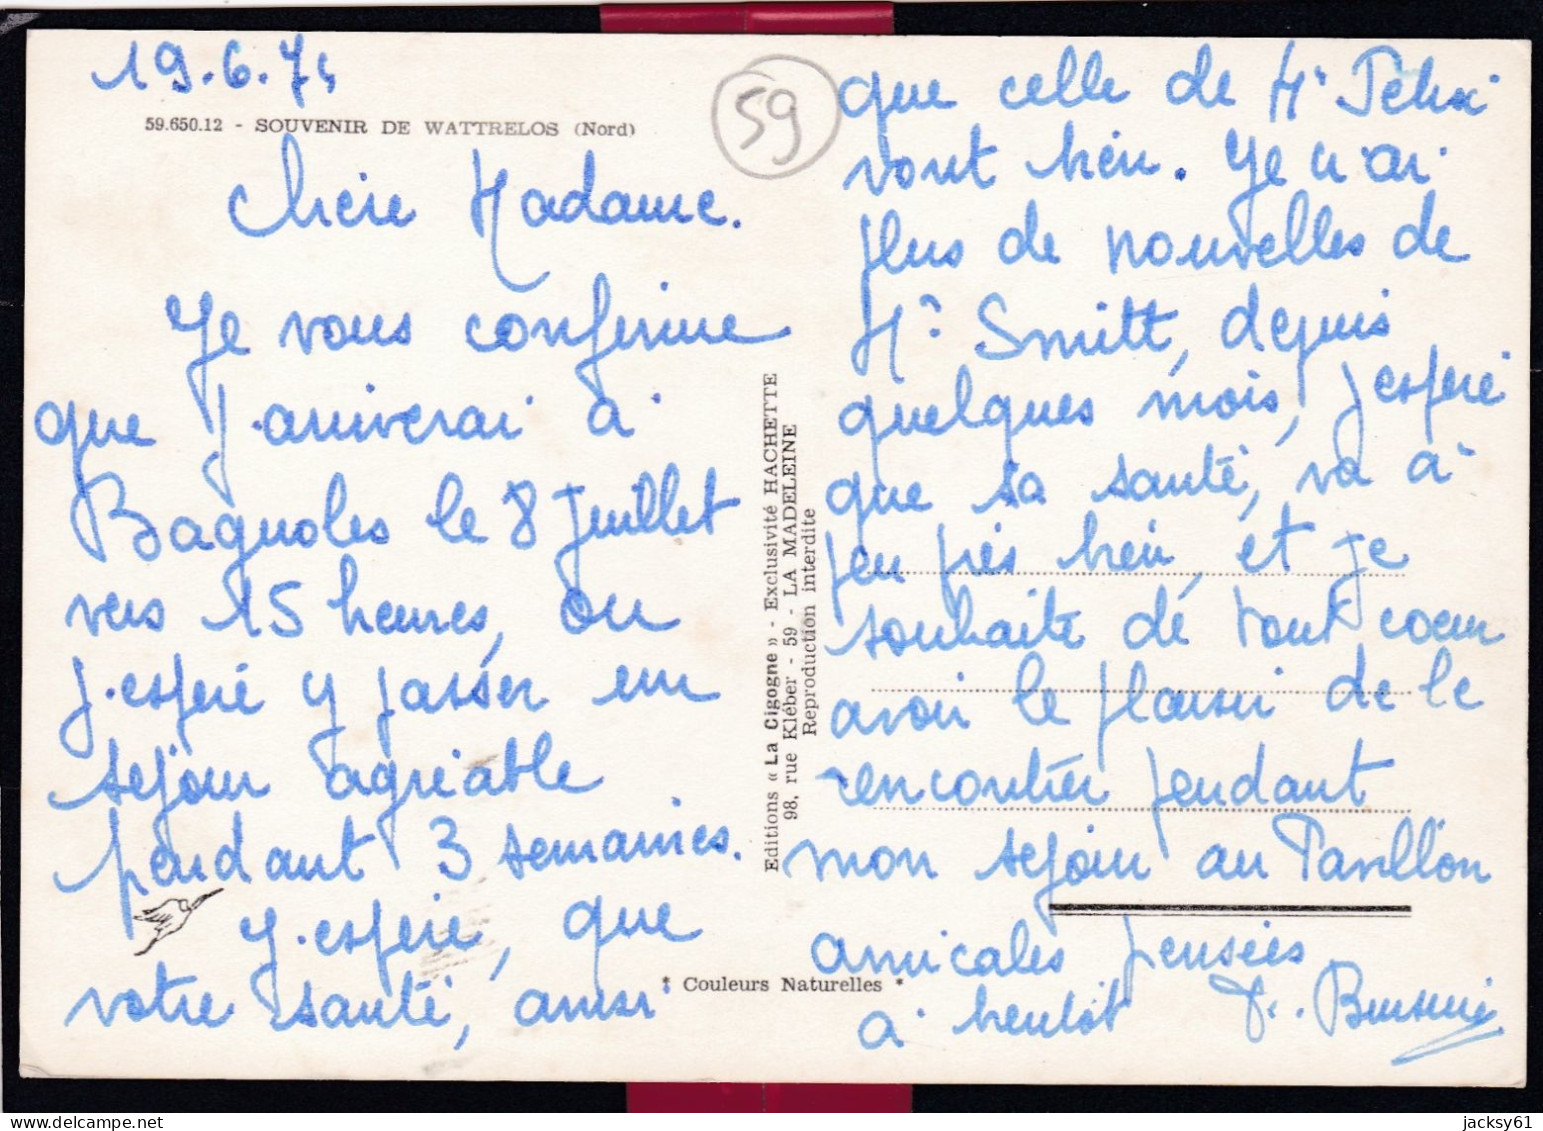 19.6.74
59.650.12 - SOUVENIR DE WATTRELOS (Nord)
59
Chère Madame.
Je vous confirme
que j'arriverai à
Bagnoles le 8 Juillet
vers 15 heures, où
j'espère y passer un
séjour agréable
pendant 3 semaines.
J'espère, que
votre santé, ainsi
* Couleurs Naturelles *
Editions « La Cigogne » - Exclusivité HACHETTE
98, rue Kléber - 59 - LA MADELEINE
Reproduction interdite
que celle de Mr
vont bien. Je n'ai
plus de nouvelles de
Mr Smitt, depuis
quelques mois, j'espère
que sa santé, va à
peu près bien, et je
souhaite de tout coeur
avoir le plaisir de le
rencontrer pendant
mon séjour au Pavillon
amicales pensées
à bientôt
jacksy61